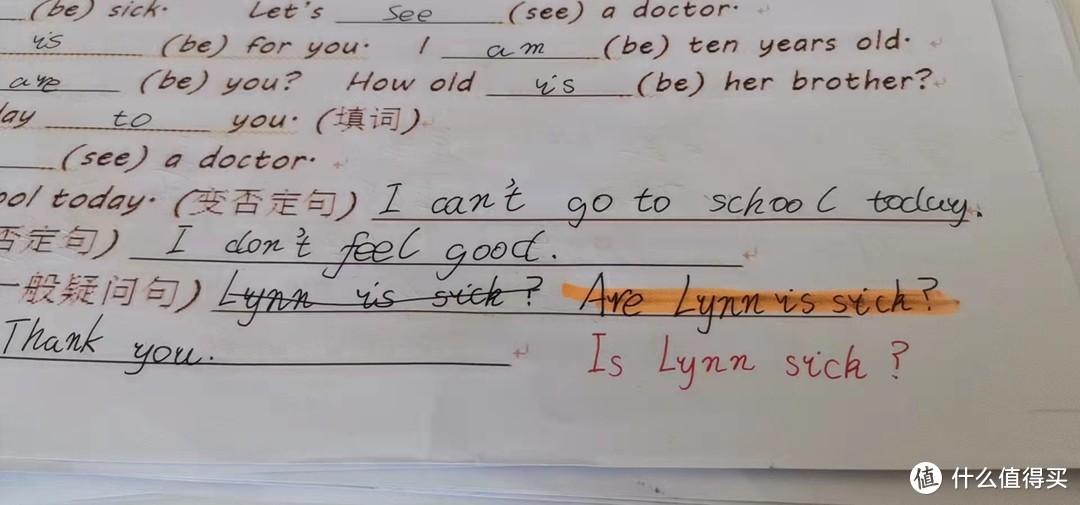 (be) sick. Let's see (see) a doctor.
is (be) for you. I am (be) ten years old.
are (be) you? How old is (be) her brother?
ay to you. (填词)
(see) a doctor.
ool today. (变否定句) I can't go to school today.
否定句) I don't feel good.
一般疑问句) Lynn is sick? Are Lynn is sick?
Thank you. Is Lynn sick?
值 什么值得买